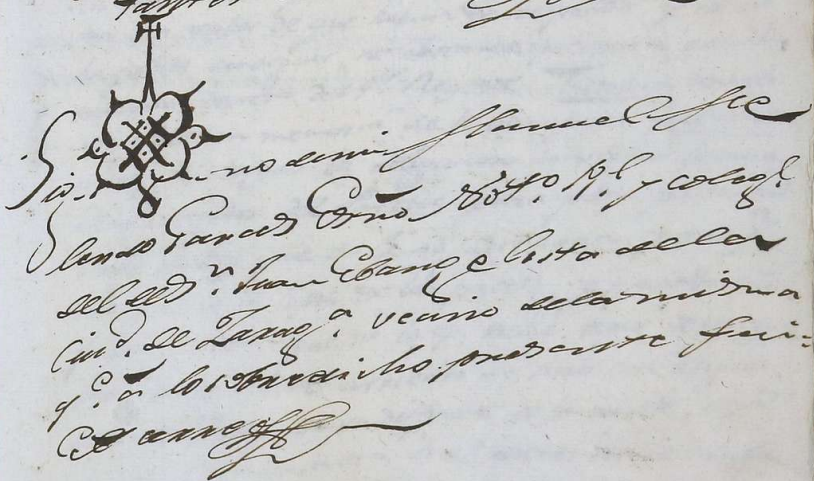 Sig no de mi Manuel Jse
lando Garces Essno Notto Rl y colegl
del de Sn Juan Ebangelista de la
Ciud. de Zaraga vecino de la misma
q.e a lo sobredicho presente fui=
Et cerre